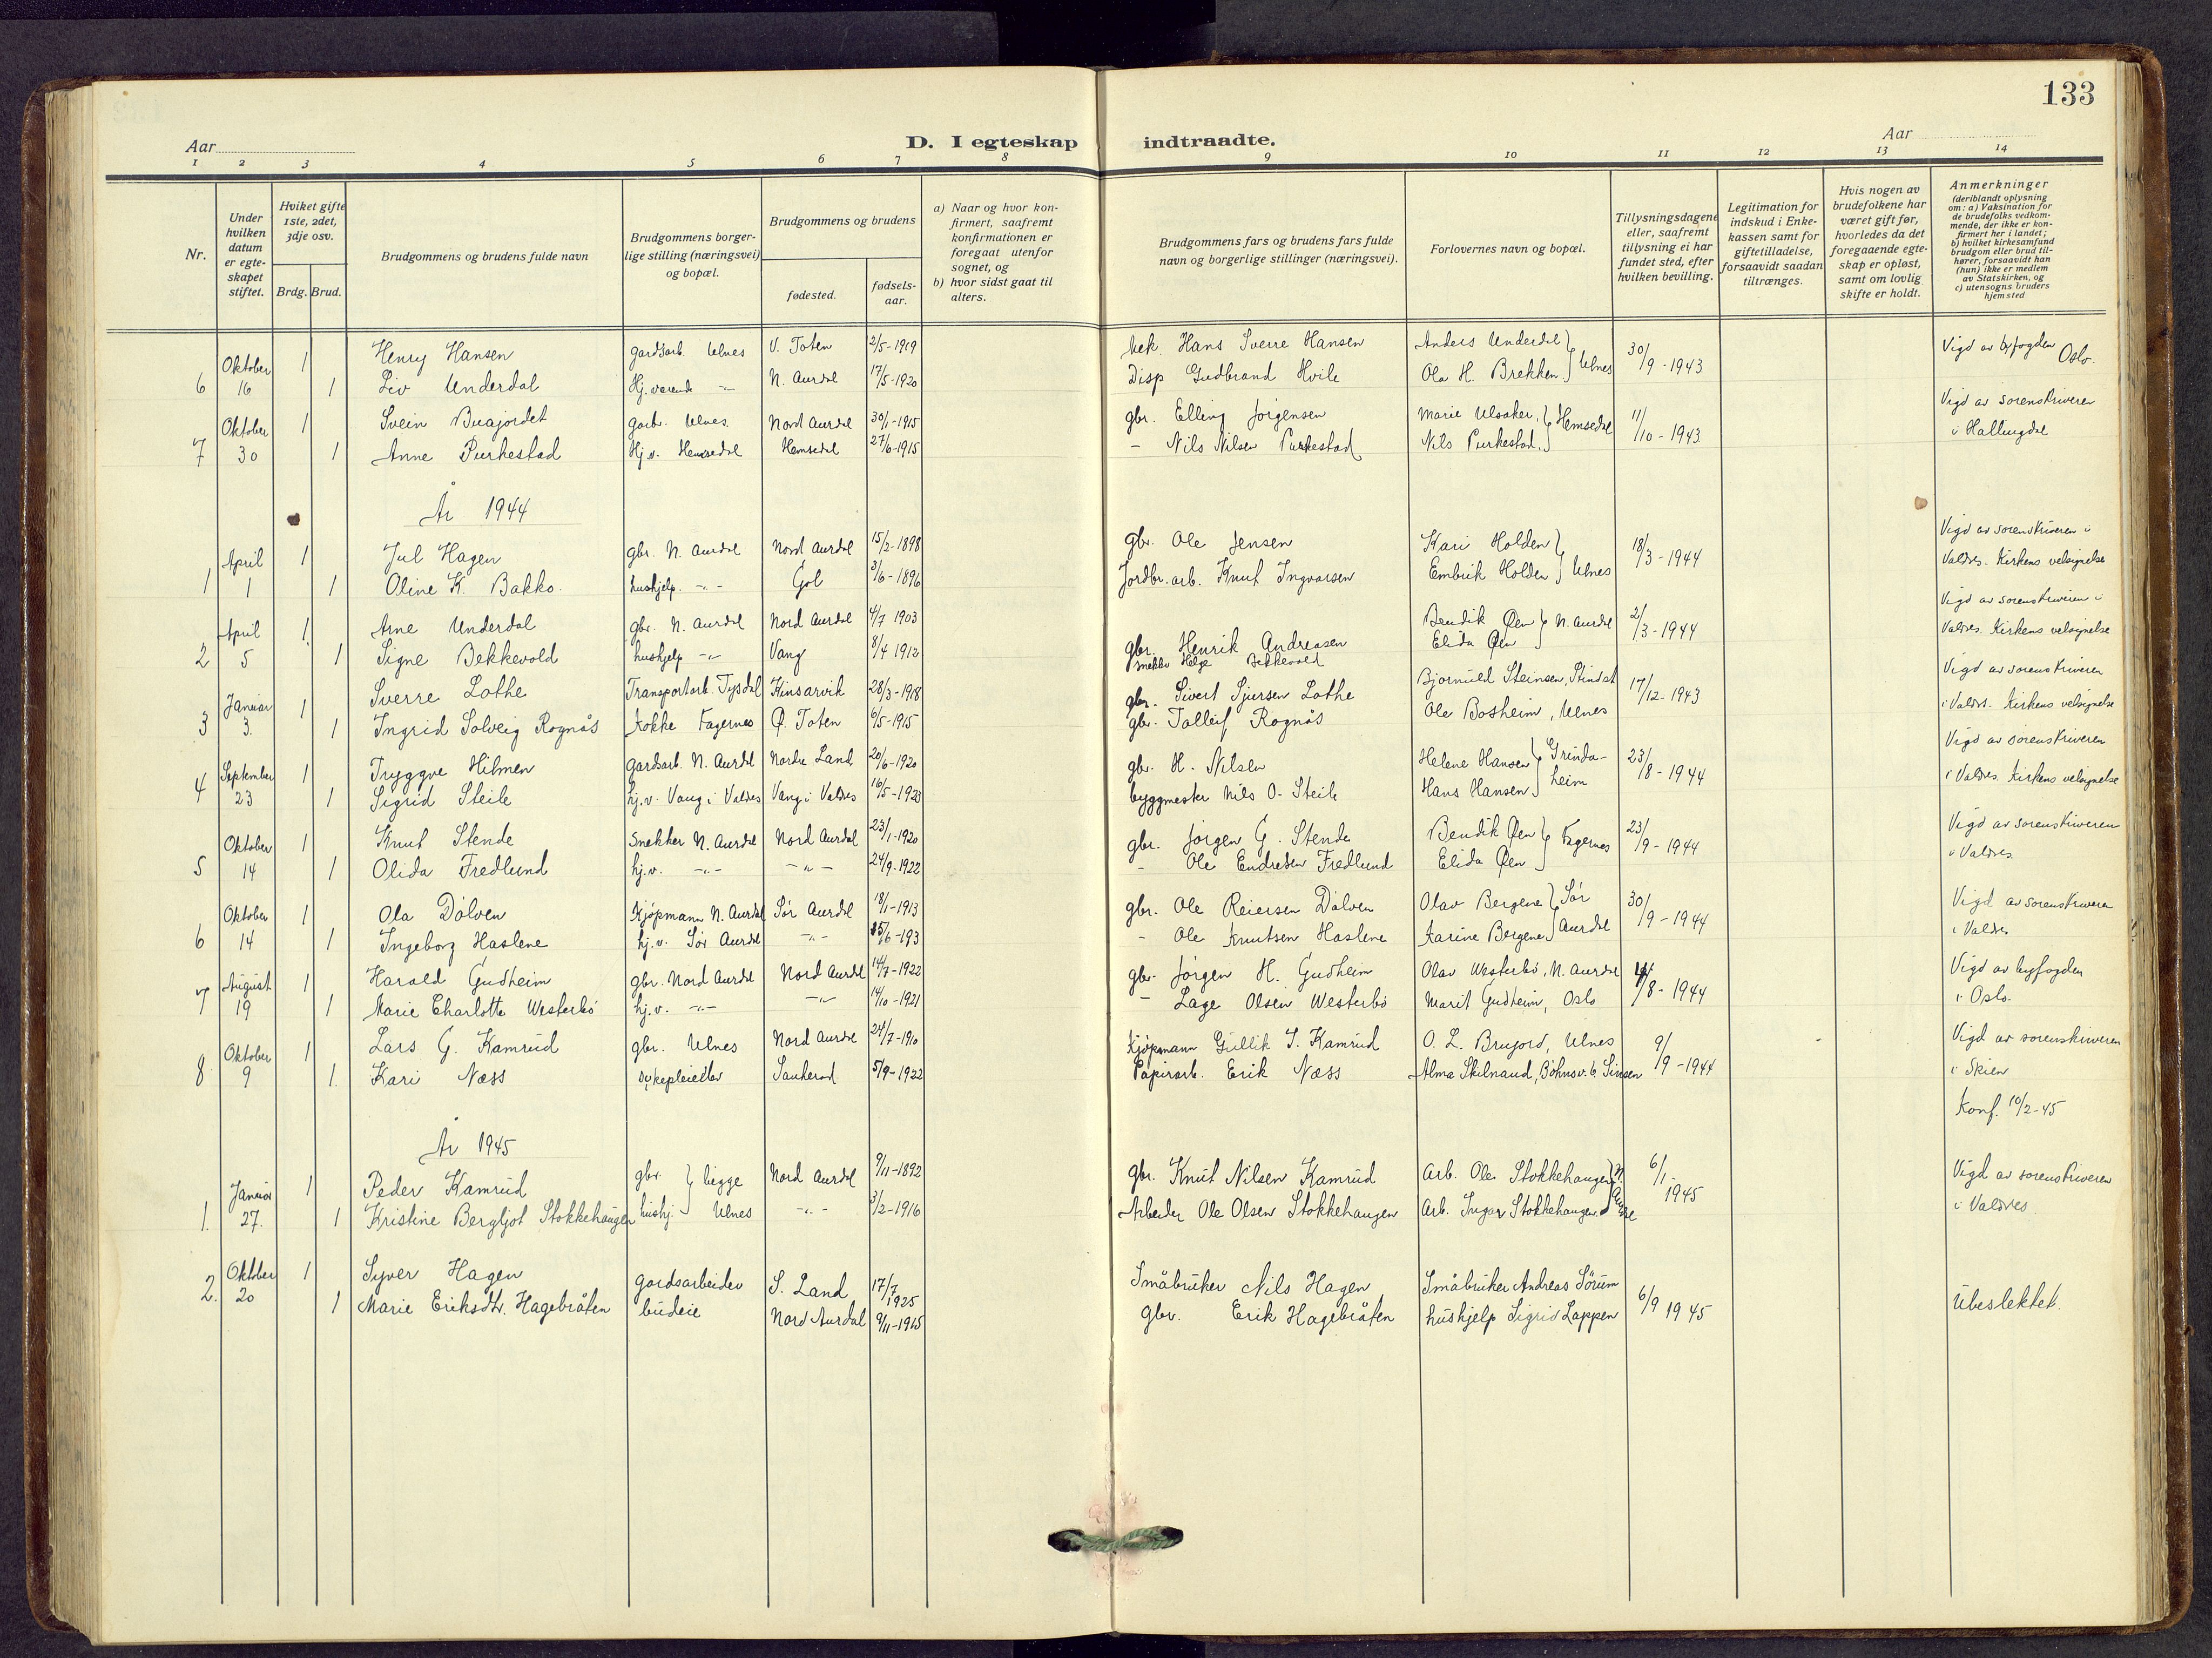 133
Aar
D. I egteskap indtraadte.
Aar
1 2 3 4 5 6 7 8 9 10 11 12 13 14
Nr.
Under hvilken datum er egte-skapet stiftet.
Hviket gifte 1ste, 2det, 3dje osv.
Brdg. Brud.
Brudgommens og brudens fulde navn
Brudgommens borger-lige stilling (næringsvei) og bopæl.
Brudgommens og brudens
fødested.
fødsels-aar.
a) Naar og hvor kon-firmert, saafremt konfirmationen er foregaat utenfor sognet, og
b) hvor sidst gaat til alters.
Brudgommens fars og brudens fars fulde navn og borgerlige stillinger (næringsvei).
Forlovernes navn og bopæl.
Tillysningsdagene eller, saafremt tillysning ei har fundet sted, efter hvilken bevilling.
Legitimation for indskud i Enke-kassen samt for giftetilladelse, forsaavidt saadan tiltrænges.
Hvis nogen av brudefolkene har været gift før, hvorledes da det foregaaende egte-skap er opløst, samt om lovlig skifte er holdt.
Anmerkninger (deriblandt oplysning om: a) Vaksination for de brudefolks vedkom-mende, der ikke er kon-firmert her i landet; b) hvilket kirkesamfund brudgom eller brud til-hører, forsaavidt han (hun) ikke er medlem av Statskirken, og c) utensogns bruders hjemsted
Oktober 1 Henry Hansen gardsarb. Ulnes V. Toten 2/5-1919 Hans Sverre Hansen Anders Underdal } Ulnes 30/9-1943 Vigd av byfogden Oslo.
6 16 1 Liv Underdal Hj.værende -"- N. Aurdal 17/5-1920 Disp Gudbrand Hvile Ola H. Brekken
Oktober 1 Svein Buajordet garb. Ulnes Nord Aurdal 30/1-1915 gbr. Elling Jørgensen Marie Ulsaker, } Hemsedal 11/10-1943 Vigd av sorenskriveren
7 30 1 Anne Purkestad Hj.v. Hemsedal Hemsedal 27/6-1915 - Nils Nilsen Purkestad Nils Purkestad. i Hallingdal
År 1944
April 1 Jul Hagen gbr. N. Aurdal Nord Aurdal 15/2-1898 gbr. Ole Jensen Kari Holden } Ulnes 18/3-1944 Vigd av sorenskriveren i
1 1 1 Oline K. Bakko. hushjelp. -"- Gol 3/6-1896 Jordbr.arb. Knut Ingvarsen Embrik Holden Valdres. Kirkens velsignelse
April 1 Arne Underdal gbr. N. Aurdal Nord Aurdal 4/7 1903 gbr. Henrik Andreasen Bendik Øen } N. Aurdal 2/3-1944 Vigd av sorenskriveren i
2 5 1 Signe Bekkevold hushjelp -"- Vang 8/4 1912 snekker Helge Bekkevold Elida Øen Valdres. Kirkens velsignelse
Januar 1 Sverre Lothe Transportarb. Tysdal Kinsarvik 28/3-1918 gbr. Sivert Sjursen Lothe Bjørnuld Steinsen, 17/12-1943 Vigd av sorenskriveren
3 3. 1 Ingrid Solveig Rognås kokke Fagernes Ø. Toten 6/5-1915 gbr. Tolleif Rognås Ole Bosheim, Ulnes i Valdrs. Kirkens velsignelse
September 1 Tryggve Hilmen gardsarb. N. Aurdal Nordre Land 20/6-1920 gbr. H. Nilsen Helene Hansen } Grinda-heim 23/8-1944 Vigd av sorenskriveren
4 23 1 Sigrid Steile hj.v. Vang i Valdres Vang i Valdres 16/5-1923 byggmester Nils O. Steile Hans Hansen i Valdres. Kirkens velsignelse
Oktober 1 Knut Stende Snekker N. Aurdal Nord Aurdal 23/1-1920 gbr. Jørgen G. Stende Bendik Øen } Fagernes 23/9-1944 Vigd av sorenskriveren
5 14 1 Olida Fredlund hj.v. -"- -"- 24/9-1922 - Ole Endresen Fredlund Elida Øen i Valdres.
Oktober 1 Ola Dölven Kjöpmann N. Aurdal Sør Aurdal 18/1-1913 gbr. Ole Reiersen Dölven Olav Bergene } Sør Aurdal 30/9-1944 Vigd av sorenskriveren
6 14 1 Ingeborg Haslene hj.v. Sør Aurdal -"- - Ole Knutsen Haslene Karine Bergene i Valdres
August 1 Harald Gudheim gbr. Nord Aurdal Nord Aurdal 14/7-1922 gbr. Jörgen H. Gudheim Olav Westerbö, N. Aurdal /8-1944 Vigd av byfogden
7 19 1 Marie Charlotte Westerbö hj.v. -"- -"- 14/10-1921 - Lage Olsen Westerbö Marit Gudheim, Oslo i Oslo.
Oktober 1 Lars G. Kamrud gbr. Ulnes Nord Aurdal 24/7-1910 Kjöpmann Gullik T. Kamrud O. L. Brujord, Ulnes 9/9-1944 Vigd av sorenskriveren
8 9 1. Kari Næss sykepleierske Sauherad 5/9-1922 Papirarb. Erik Næss Alma Skilnand, i Skien
Konf. 10/2-45
År 1945
Januar 1 Peder Kamrud gbr. } begge Ulnes Nord Aurdal 9/11-1892 gbr. Knut Nilsen Kamrud Arb. Ole Stokkehaugen } N. Aurdal 6/1-1945 Vigd av sorenskriveren
1. 27. 1 Kristine Bergljot Stokkehaugen hushj. -"- 3/2-1916 Arbeider Ole Olsen Stokkehaugen Arb. Ingar Stokkehaugen i Valdres
Oktober 1 Syver Hagen gardsarbeider S. Land 17/7 1925 Småbruker Nils Hagen Småbruker Andreas Sörum 6/9 1945 Ubeslektet.
2. 20 1 Marie Eriksdtr. Hagebråten budeie Nord Aurdal 9/11-1915 gbr. Erik Hagebråten hushjelp Sigrid Lappen